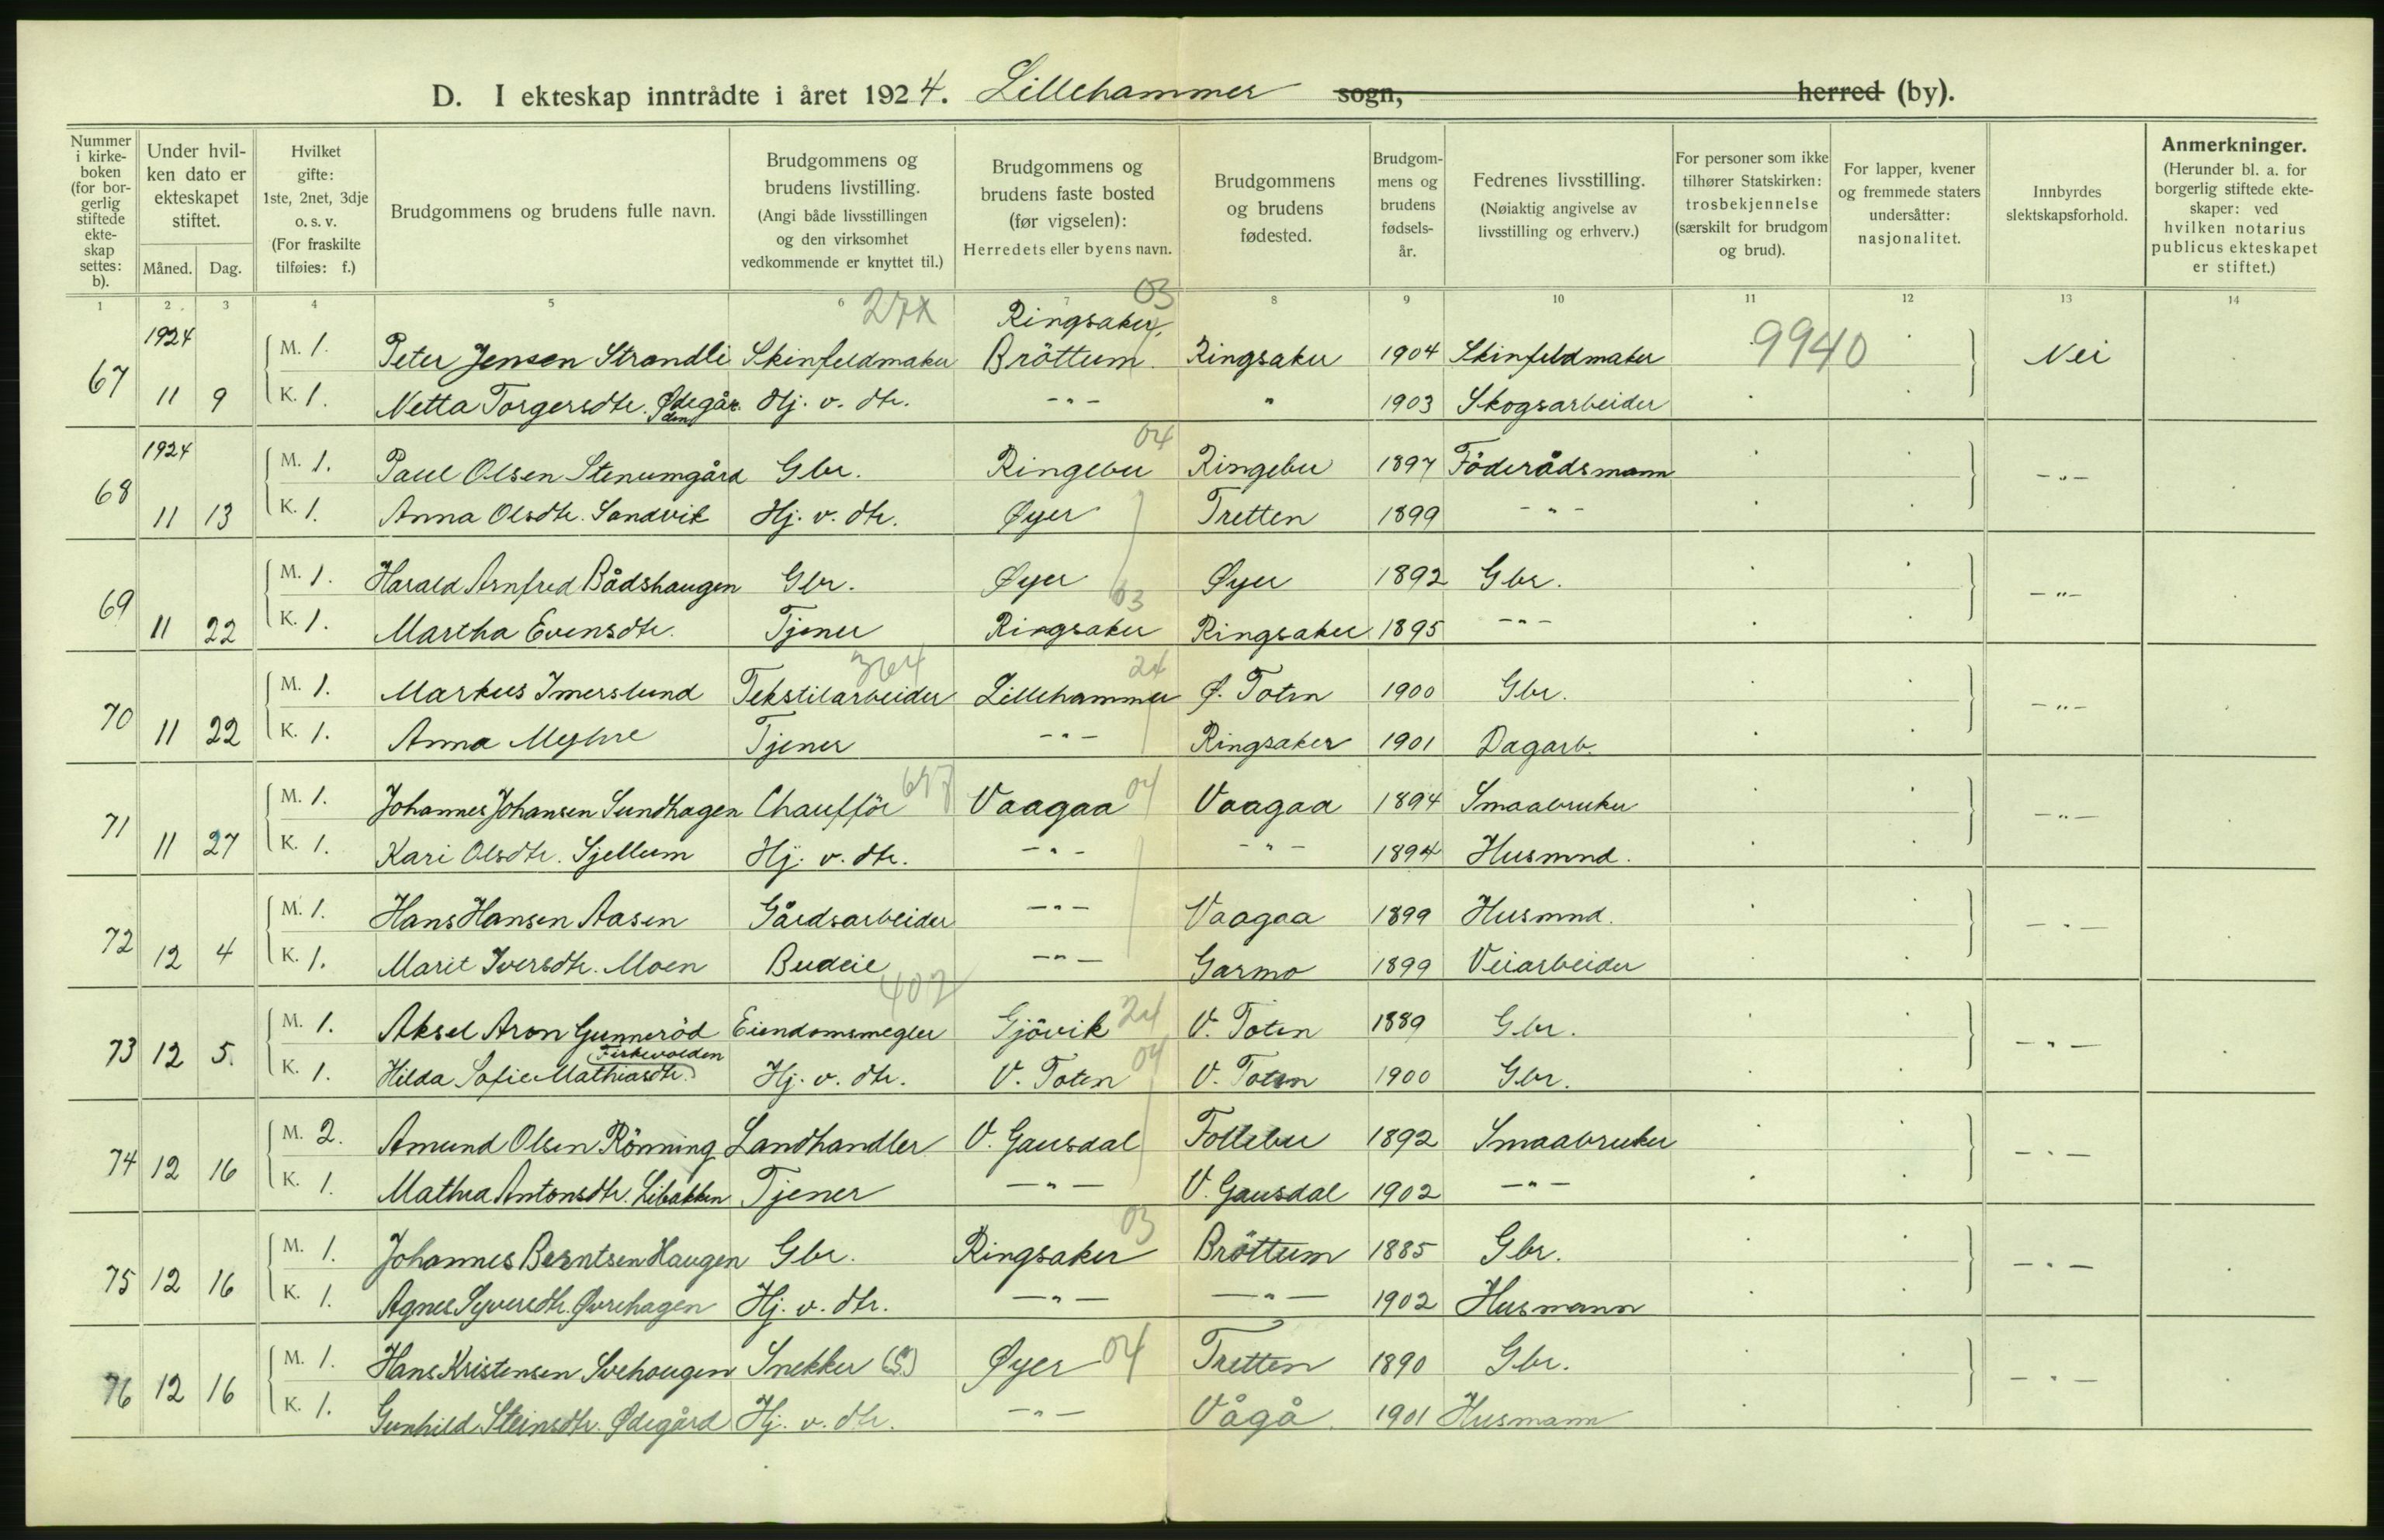 D. I ekteskap inntrådte i året 1924. Lillehammer sogn, herred (by).
Nummer i kirkeboken (for borgerlig stiftede ekteskap settes: b). | Under hvilken dato er ekteskapet stiftet. Måned. Dag. | Hvilket gifte: 1ste, 2net, 3dje o. s. v. (For fraskilte tilføies: f.) | Brudgommens og brudens fulle navn. | Brudgommens og brudens livstilling. (Angi både livsstillingen og den virksomhet vedkommende er knyttet til.) | Brudgommens og brudens faste bosted (før vigselen): Herredets eller byens navn. | Brudgommens og brudens fødested. | Brudgommens og brudens fødselsår. | Fedrenes livsstilling. (Nøiaktig angivelse av livsstilling og erhverv.) | For personer som ikke tilhører Statskirken: trosbekjennelse (særskilt for brudgom og brud). | For lapper, kvener og fremmede staters undersåtter: nasjonalitet. | Innbyrdes slektskapsforhold. | Anmerkninger. (Herunder bl. a. for borgerlig stiftede ekteskaper: ved hvilken notarius publicus ekteskapet er stiftet.)
1 2 3 4 5 6 7 8 9 10 11 12 13 14
27x Ringsaker, 03
67 1924 M. 1. Peter Jensen Strandli Skinfeldmaker Bröttum Ringsaker 1904 Skinfeldmaker 9940 Nei
11 9 K. 1. Netta Torgersdtr. Ødegården Hj. v. dtr. -"- " 1903 Skogsarbeider
68 1924 M. 1. Paul Olsen Stenumgård Gbr. Ringebu 04 Ringebu 1897 Föderådsmann -"-
11 13 K. 1. Anna Olsdtr. Sandvik Hj. v. dtr. Øyer Tretten 1899 -"-
69 M. 1. Harald Arnfred Bådshaugen Gbr. Øyer Øyer 1892 Gbr. -"-
11 22 K. 1. Martha Evensdtr. Tjener Ringsaker 03 Ringsaker 1895 -"-
70 M. 1. Markus Imerslund Tekstilarbeider 364 Lillehammer 24 Ø. Toten 1900 Gbr. -"-
11 22 K. 1. Anna Myhre Tjener -"- Ringsaker 1901 Dagarb.
71 M. 1. Johannes Johansen Sundhagen Chaufför Vaagaa 04 Vaagaa 1894 Smaabruker -"-
11 27 K. 1. Kari Olsdtr. Sjellum Hj. v. dtr. -"- -"- 1894 Husmnd.
72 M. 1. Hans Hansen Aasen Gårdsarbeider -"- Vaagaa 1899 Husmnd. -"-
12 4 K. 1. Marit Iversdtr. Moen Budeie -"- Garmo 1899 Veiarbeider
73 12 5. M. 1. Aksel Aron Gunneröd Eiendomsmegler 402 Gjövik 24 V. Toten 1889 Gbr. -"-
K. 1. Hilda Sofie Mathiasdtr. Fiskevolden Hj. v. dtr. V. Toten 04 V. Toten 1900 Gbr.
74 12 16 M. 2. Amund Olsen Rönning Landhandler V. Gausdal Follebu 1892 Smaabruker -"-
K. 1. Mathea Antonsdtr. Libakken Tjener -"- V. Gausdal 1902 -"-
75 12 16 M. 1. Johannes Berntsen Haugen Gbr. Ringsaker 03 Bröttum 1885 Gbr. -"-
K. 1. Agnes Syversdtr. Øvrehagen Hj. v. dtr. -"- -"- 1902 Husmann
76 12 16 M. 1. Hans Kristensen Svehaugen Snekker (S.) Øyer 04 Tretten 1890 Gbr. -"-
K. 1. Gunhild Steinsdtr. Ødegård Hj. v. dtr. -"- Vågå 1901 Husmann